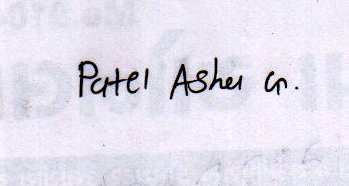 Patel Asha G.